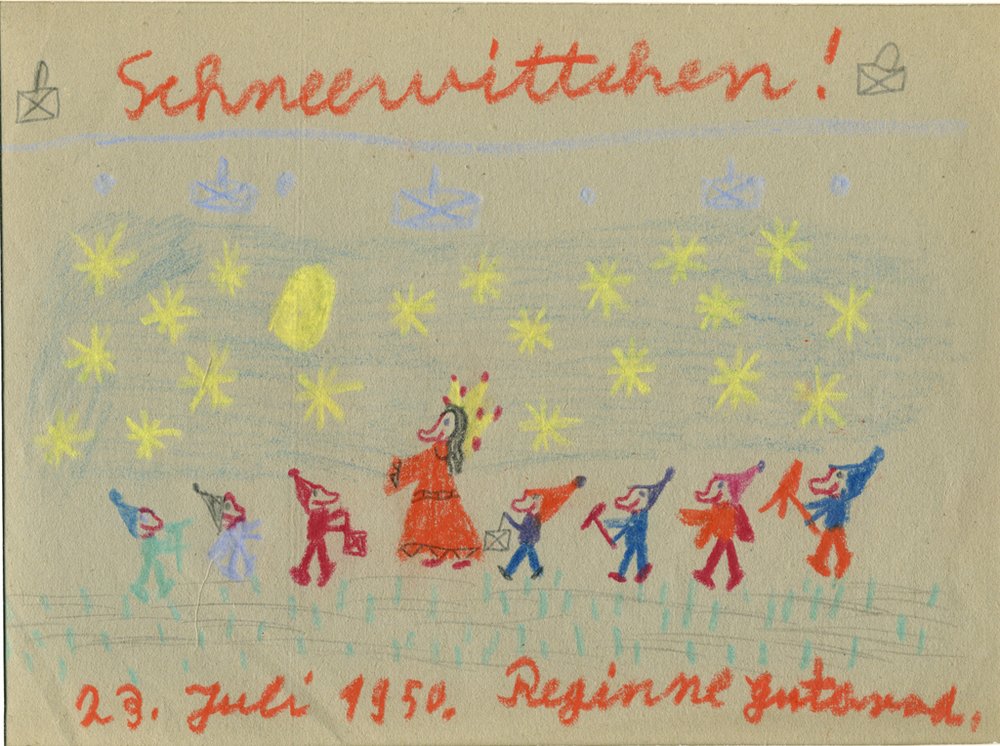 Schneewittchen!
23. Juli 1950. Reginne